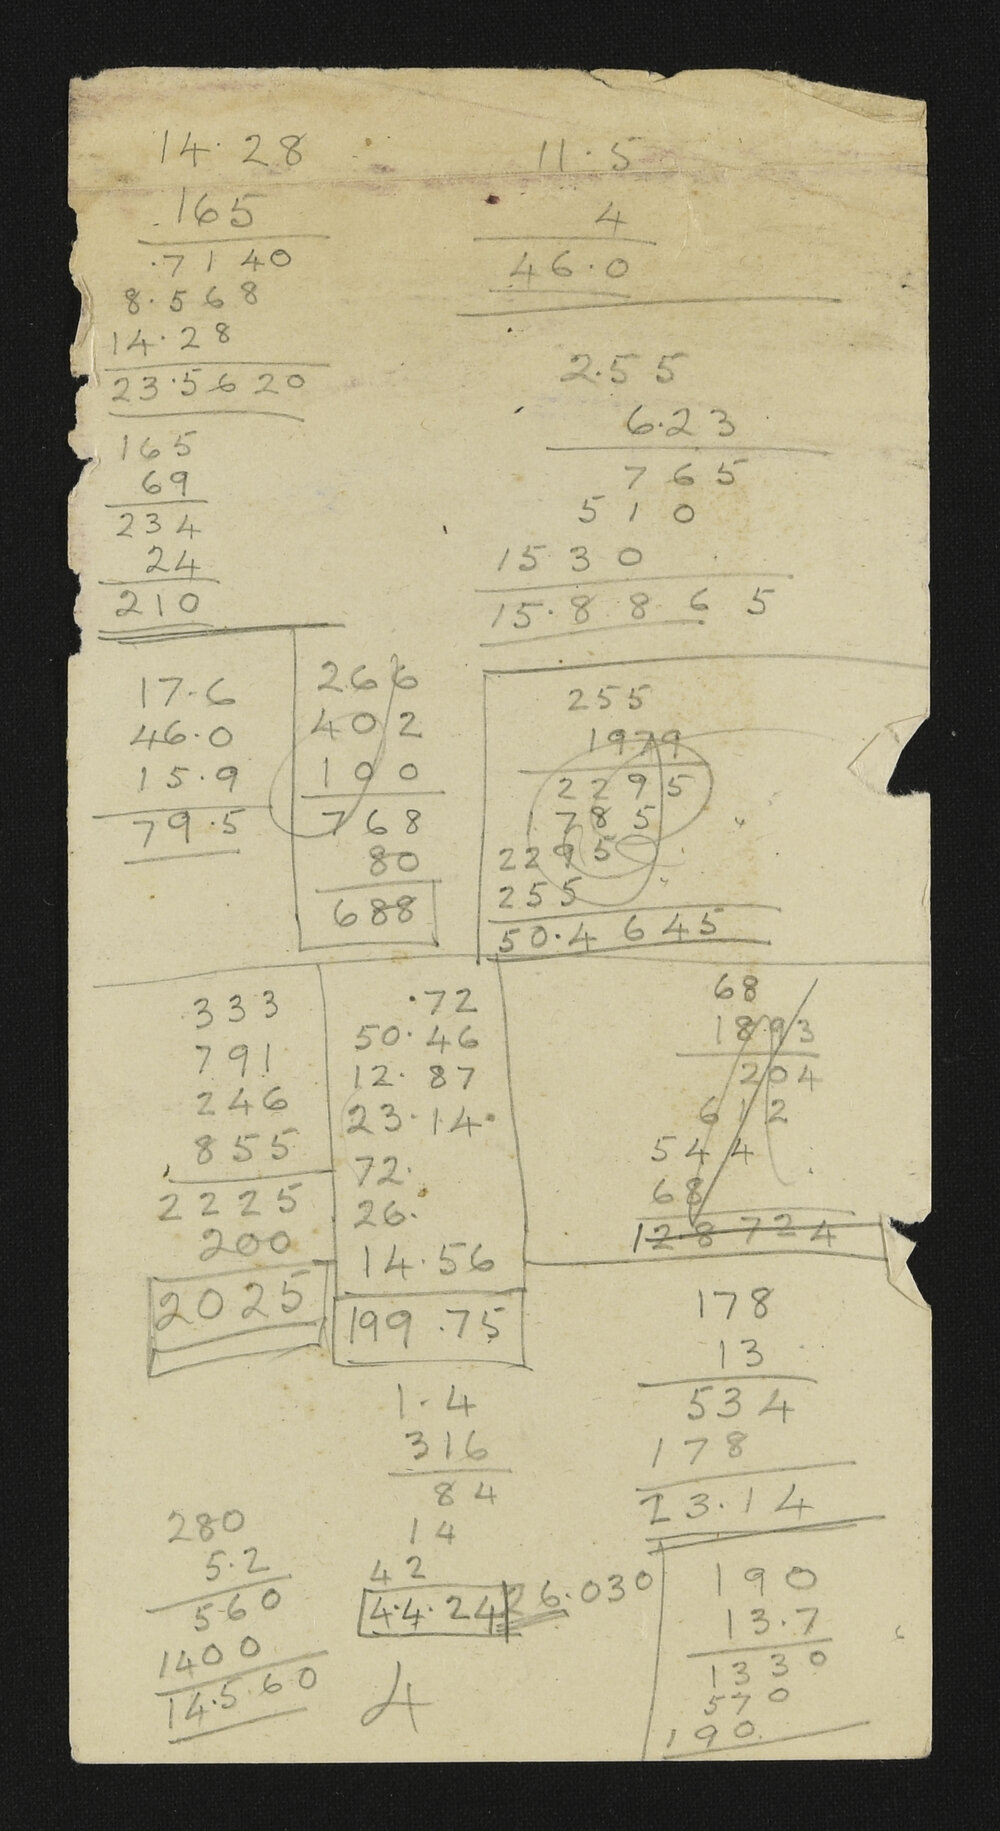 14.28
165
.7140
8.568
14.28
23.5620
165
69
234
24
210
11.5
4
46.0
2.55
6.23
765
510
1530
15.8865
17.6
46.0
15.9
79.5
266
402
100
768
80
688
255
1979
2295
785
2295
255
50.4645
333
791
246
855
2225
200
2025
.72
50.46
12.87
23.14.
72.
26.
14.56
199.75
68
1893
204
612
544
68
12.8724
178
13
534
178
23.14
1.4
316
84
14
42
4.4.24
26.030
4
280
5.2
560
1400
14.5.60
190
13.7
1330
570
190.